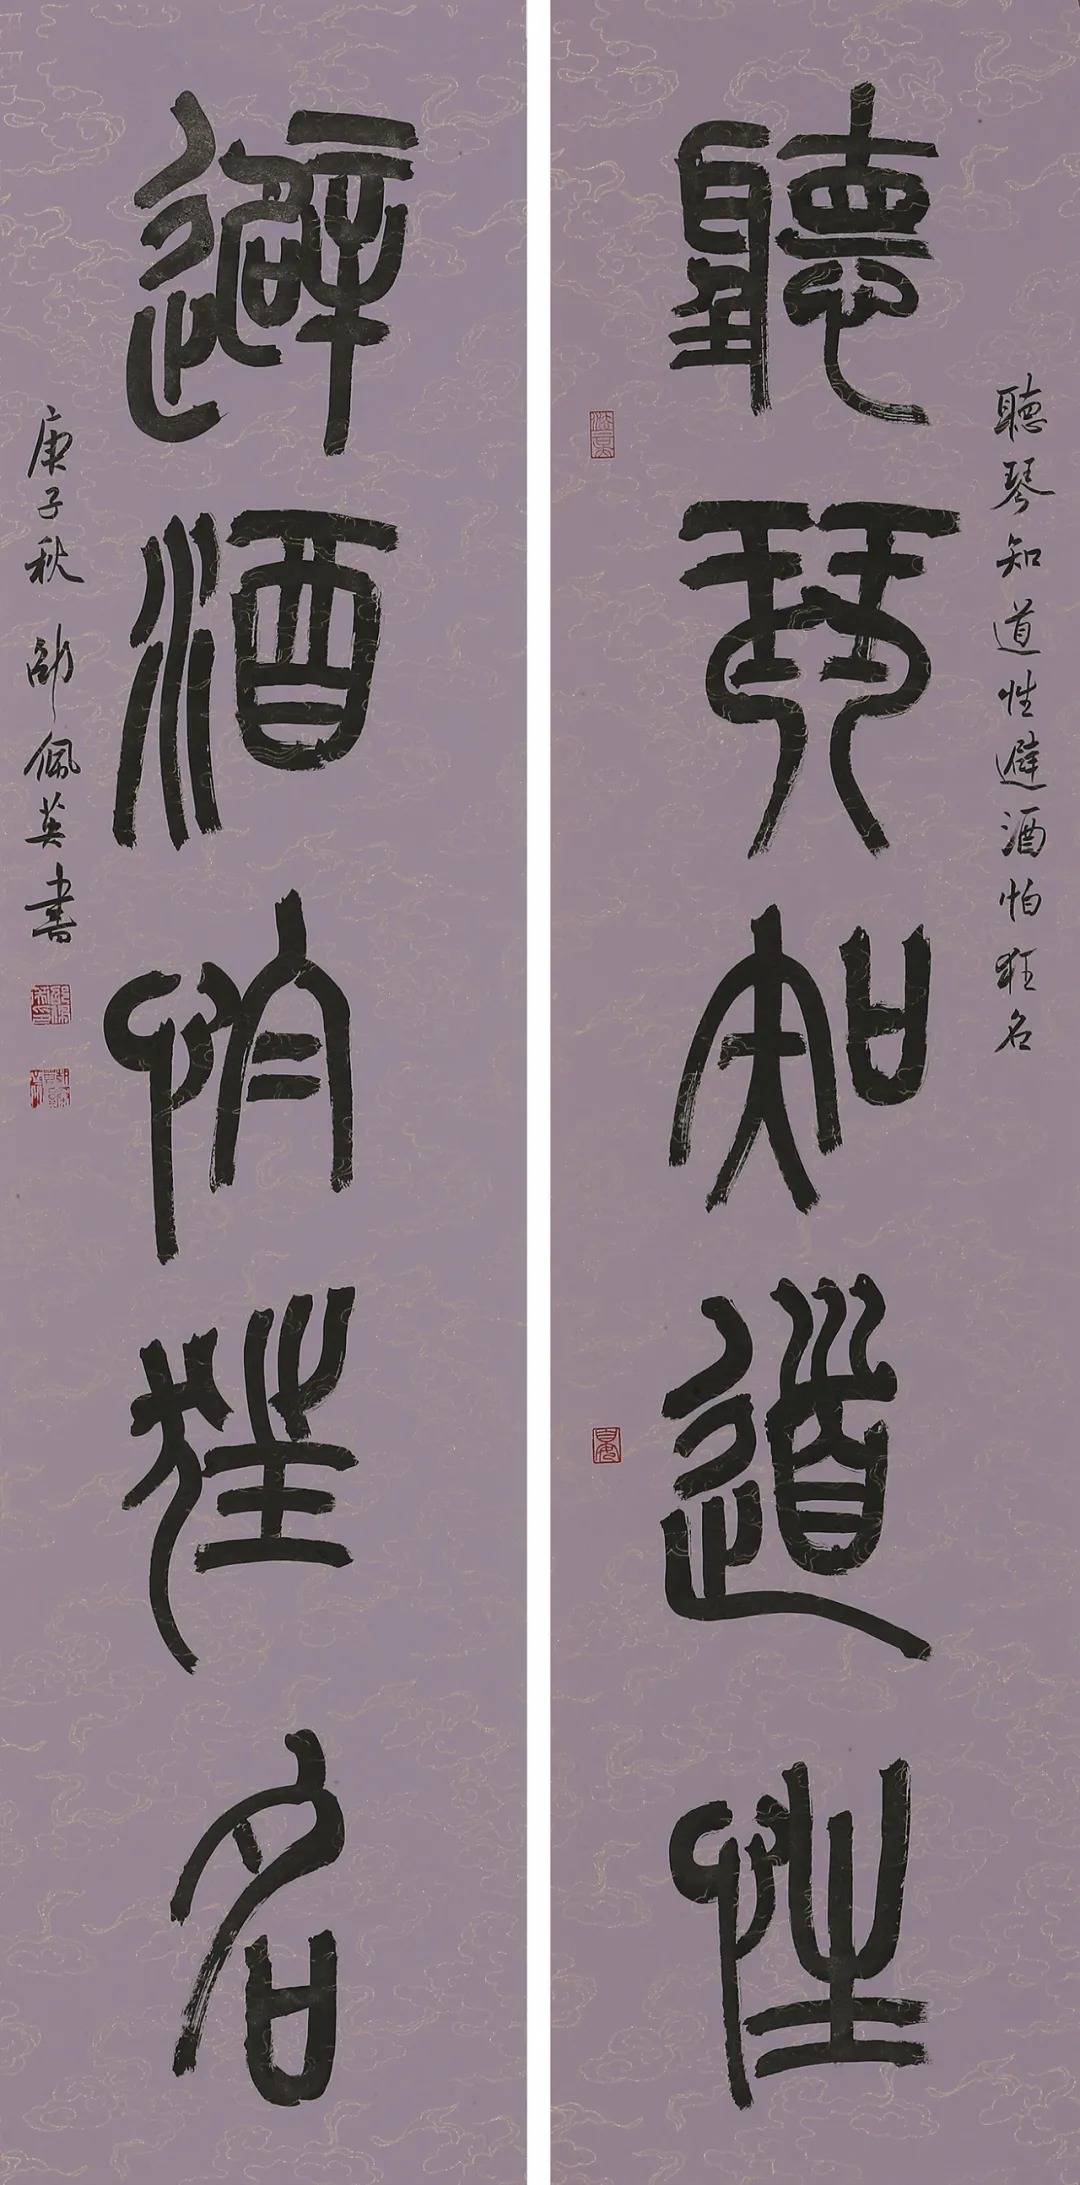 聽琴知道性
聽琴知道性避酒怕狂名
避酒怕狂名
庚子秋 邵佩英書